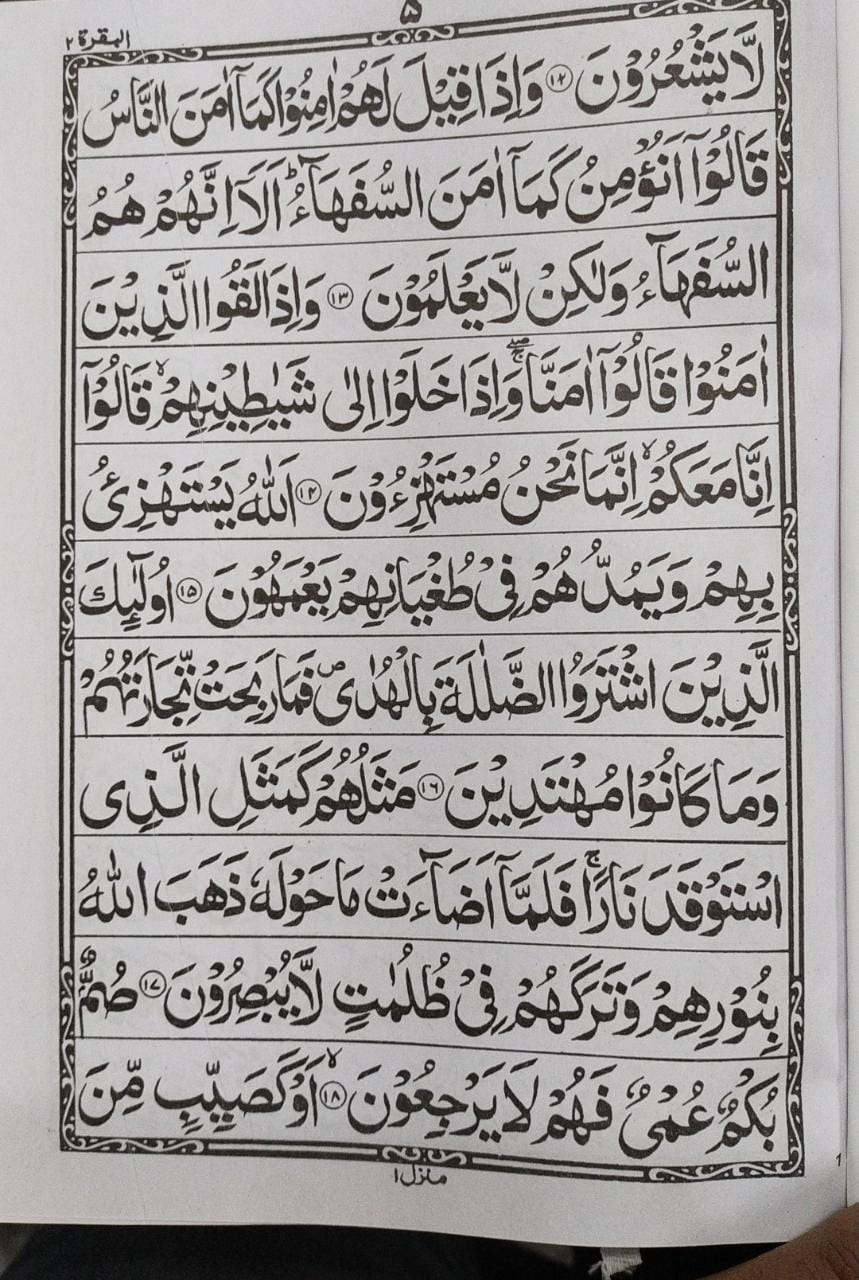 ۵
البقرة ۲
لَّا يَشْعُرُوْنَ ⑫ وَاِذَا قِيْلَ لَهُمْ اٰمِنُوْا كَمَاۤ اٰمَنَ النَّاسُ
قَالُوْۤا اَنُؤْمِنُ كَمَاۤ اٰمَنَ السُّفَهَآءُ ؕ اَلَاۤ اِنَّهُمْ هُمُ
السُّفَهَآءُ وَلٰكِنْ لَّا يَعْلَمُوْنَ ⑬ وَاِذَا لَقُوا الَّذِيْنَ
اٰمَنُوْا قَالُوْۤا اٰمَنَّا ۖۚ وَاِذَا خَلَوْا اِلٰى شَيٰطِيْنِهِمْ ۙ قَالُوْۤا
اِنَّا مَعَكُمْ ۙ اِنَّمَا نَحْنُ مُسْتَهْزِءُوْنَ ⑭ اَللّٰهُ يَسْتَهْزِئُ
بِهِمْ وَيَمُدُّهُمْ فِيْ طُغْيَانِهِمْ يَعْمَهُوْنَ ⑮ اُولٰٓئِكَ
الَّذِيْنَ اشْتَرَوُا الضَّلٰلَةَ بِالْهُدٰى ۪ فَمَا رَبِحَتْ تِّجَارَتُهُمْ
وَمَا كَانُوْا مُهْتَدِيْنَ ⑯ مَثَلُهُمْ كَمَثَلِ الَّذِى
اسْتَوْقَدَ نَارًا ۚ فَلَمَّاۤ اَضَآءَتْ مَا حَوْلَهٗ ذَهَبَ اللّٰهُ
بِنُوْرِهِمْ وَتَرَكَهُمْ فِيْ ظُلُمٰتٍ لَّا يُبْصِرُوْنَ ⑰ صُمٌّۢ
بُكْمٌ عُمْيٌ فَهُمْ لَا يَرْجِعُوْنَ ⑱ ۙ اَوْ كَصَيِّبٍ مِّنَ
منزل ۱
1